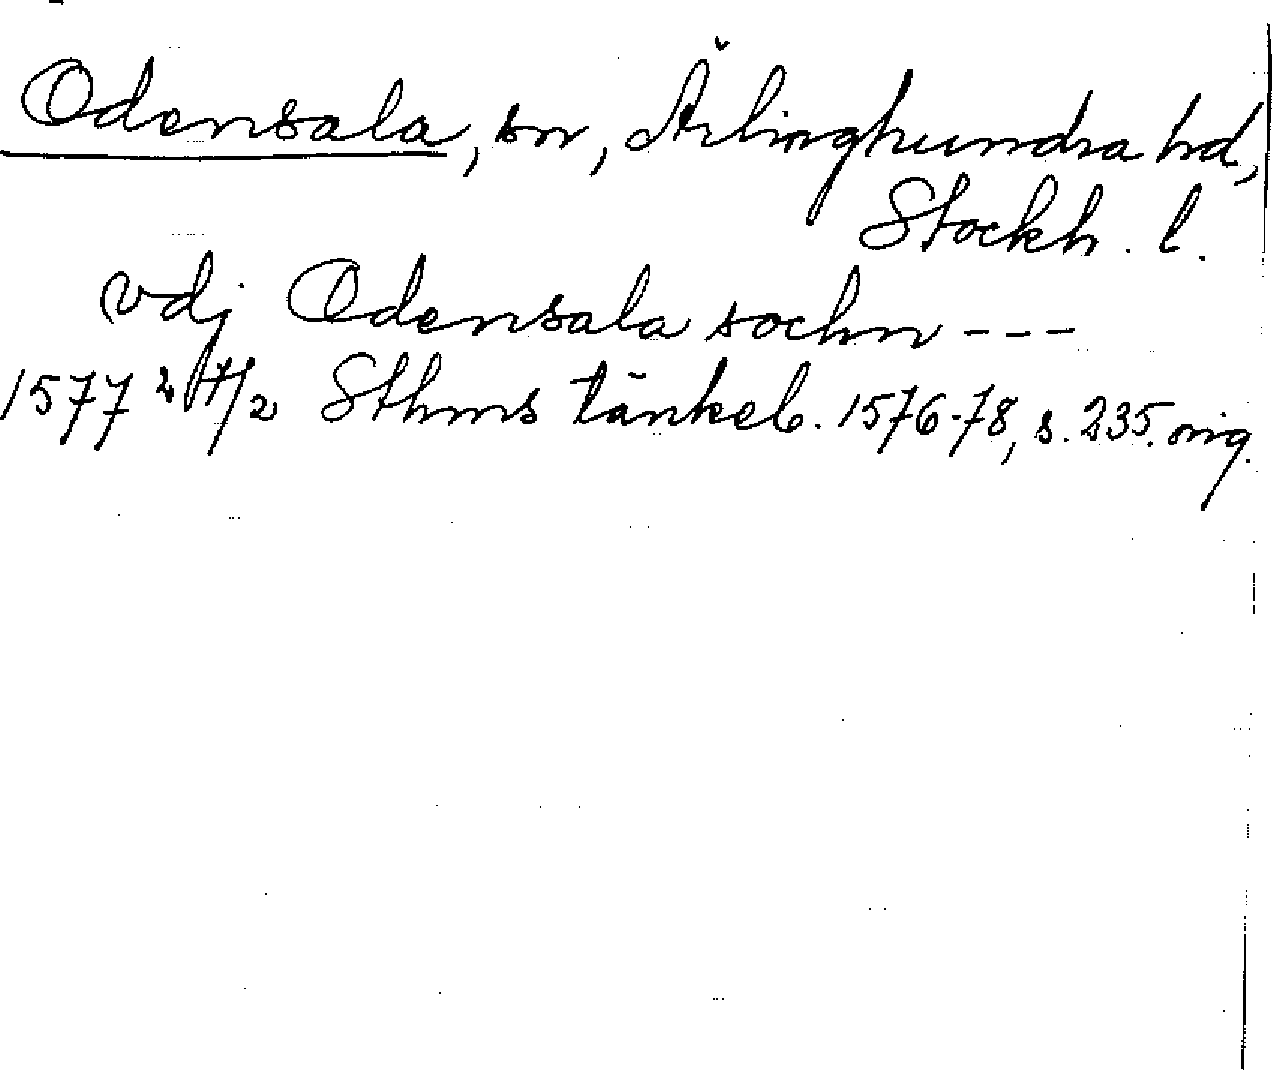 Odensala, sn, Ärlinghundra hd,
Stockh. l.
vdj Odensala sochn ---
1577 27/2 Sthms tänkeb. 1576-78, s. 235. orig.